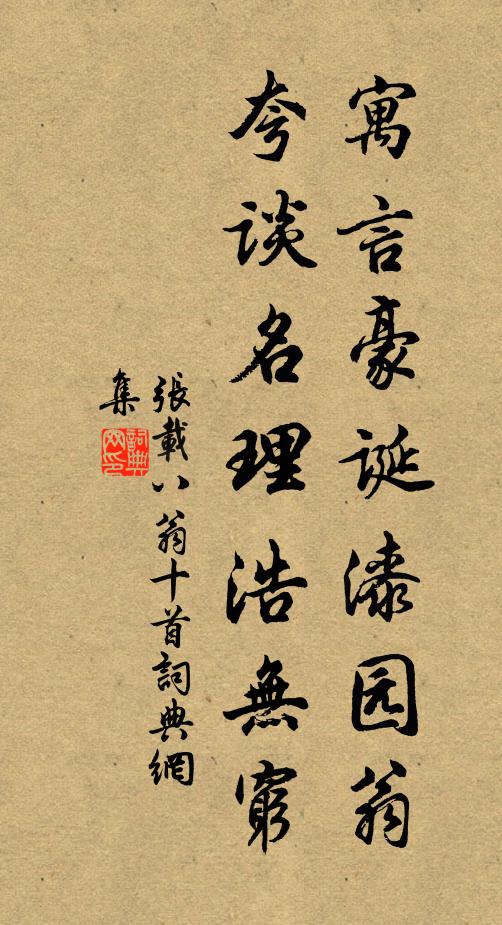 寓言豪誕漆园翁
夸谈名理浩無窮
張載八翁十首詞典網
集
詞典
网印